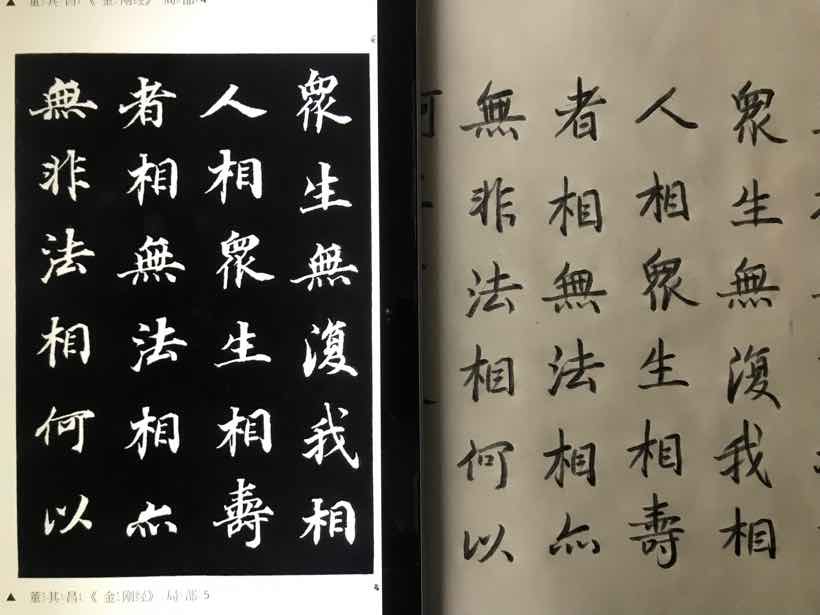 董其昌《金刚经》局部4
眾生無復我相
人相眾生相壽
者相無法相亦
無非法相何以
▲ 董其昌《金刚经》局部5
眾生無復我相
人相眾生相壽
者相無法相亦
無非法相何以